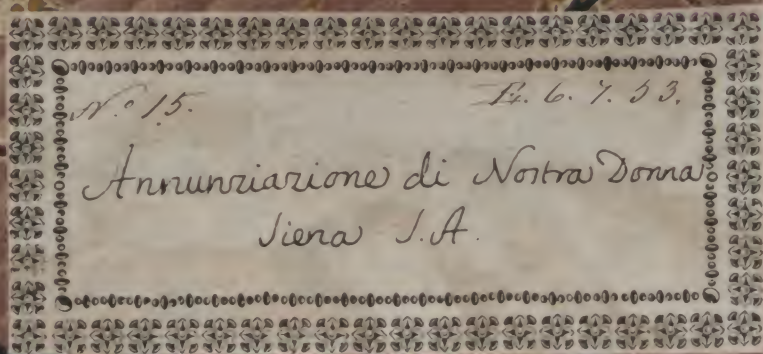 N.º 15. E. 6. 7. 53.
Annunziazione di Nostra Donna
Siena S.A.